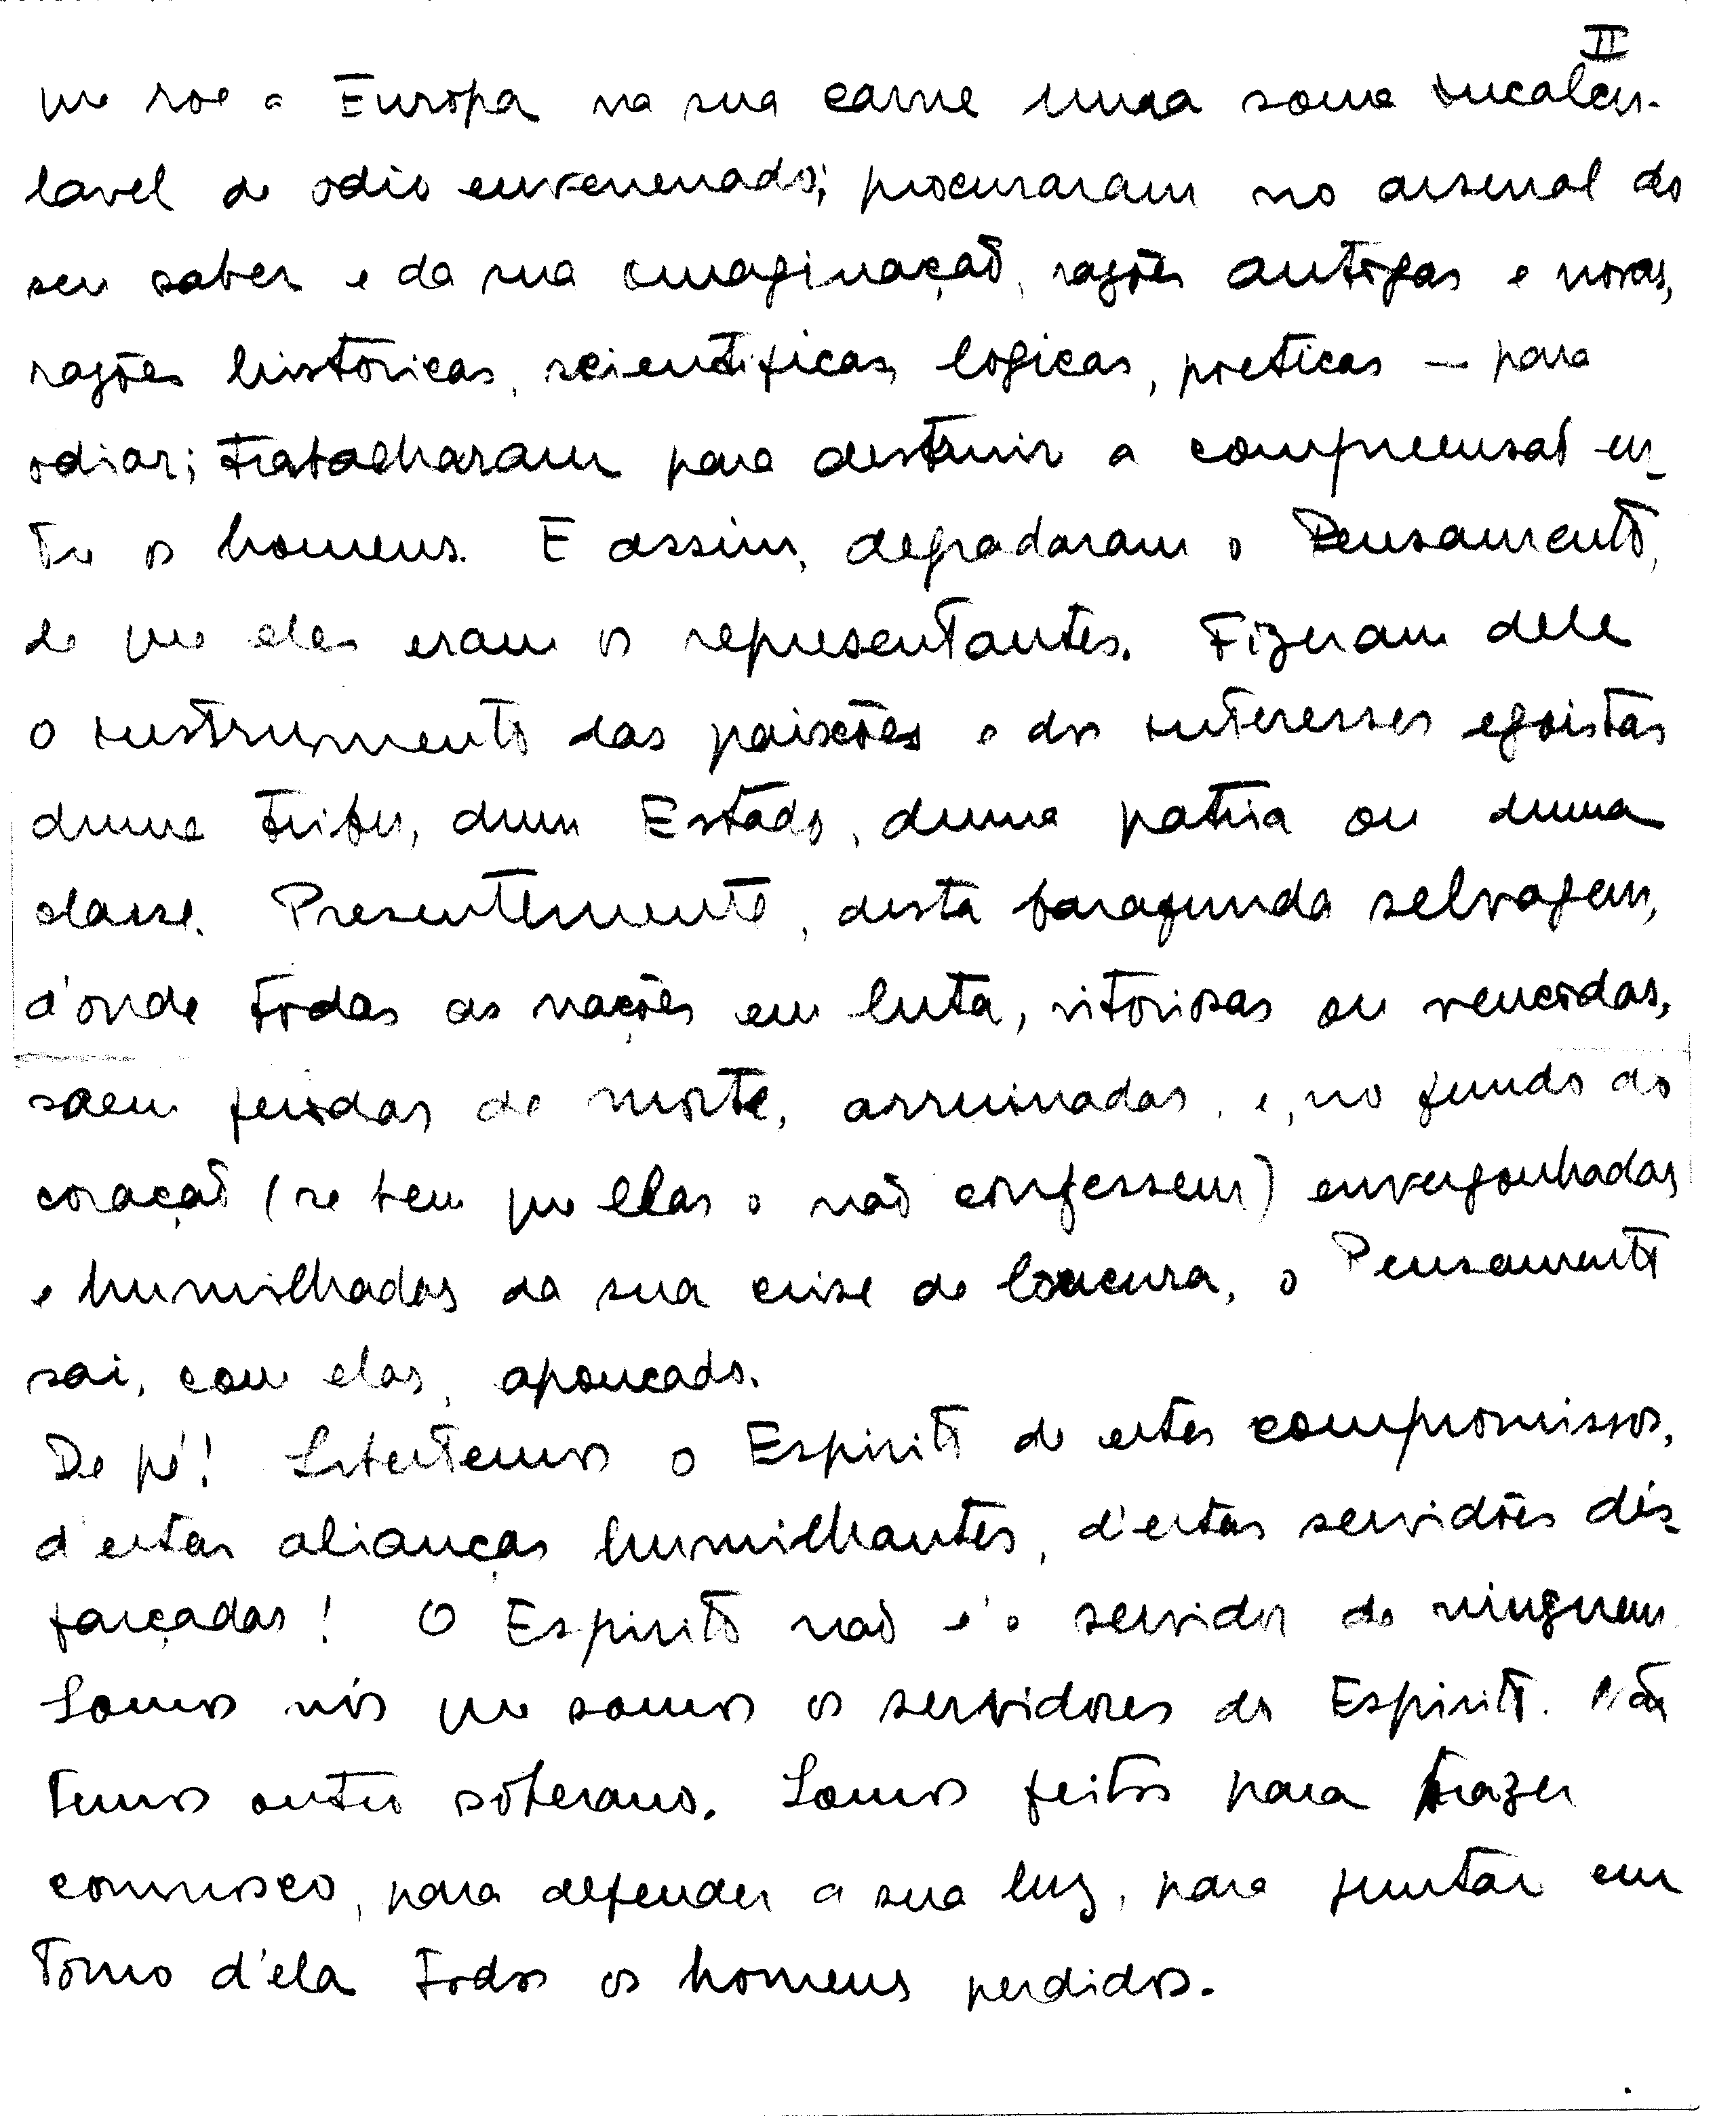 II
que roe a Europa na sua carne uma soma incalcu-
lavel de odio envenenado; procuraram no arsenal do
seu saber e da sua imaginação, razões antigas e novas,
razões históricas, scientificas, logicas, poeticas — para
odiar; trabalharam para destruir a compreensão en-
tre os homens. E assim, degradaram o Pensamento,
de que eles eram os representantes. Fizeram dele
o instrumento das paixões e dos interesses egoistas
duma tribu, dum Estado, duma patria ou duma
classe. Presentemente, desta barafunda selvagem,
d'onde todas as nações em luta, vitoriosas ou vencidas,
saem feridas de morte, arruinadas, e, no fundo do
coração (se bem que elas o não confessem) envergonhadas
e humilhadas da sua crise de loucura, o Pensamento
sai, com elas, apoucado.
De pé! Libertemos o Espirito de estes compromissos,
d'estas alianças humilhantes, d'estas servidões dis-
farçadas! O Espirito não é o servidor de ninguem.
Somos nós que somos os servidores do Espirito. Não
temos outro soberano. Somos feitos para trazer
connosco, para defender a sua luz, para juntar em
torno d'ela todos os homens perdidos.